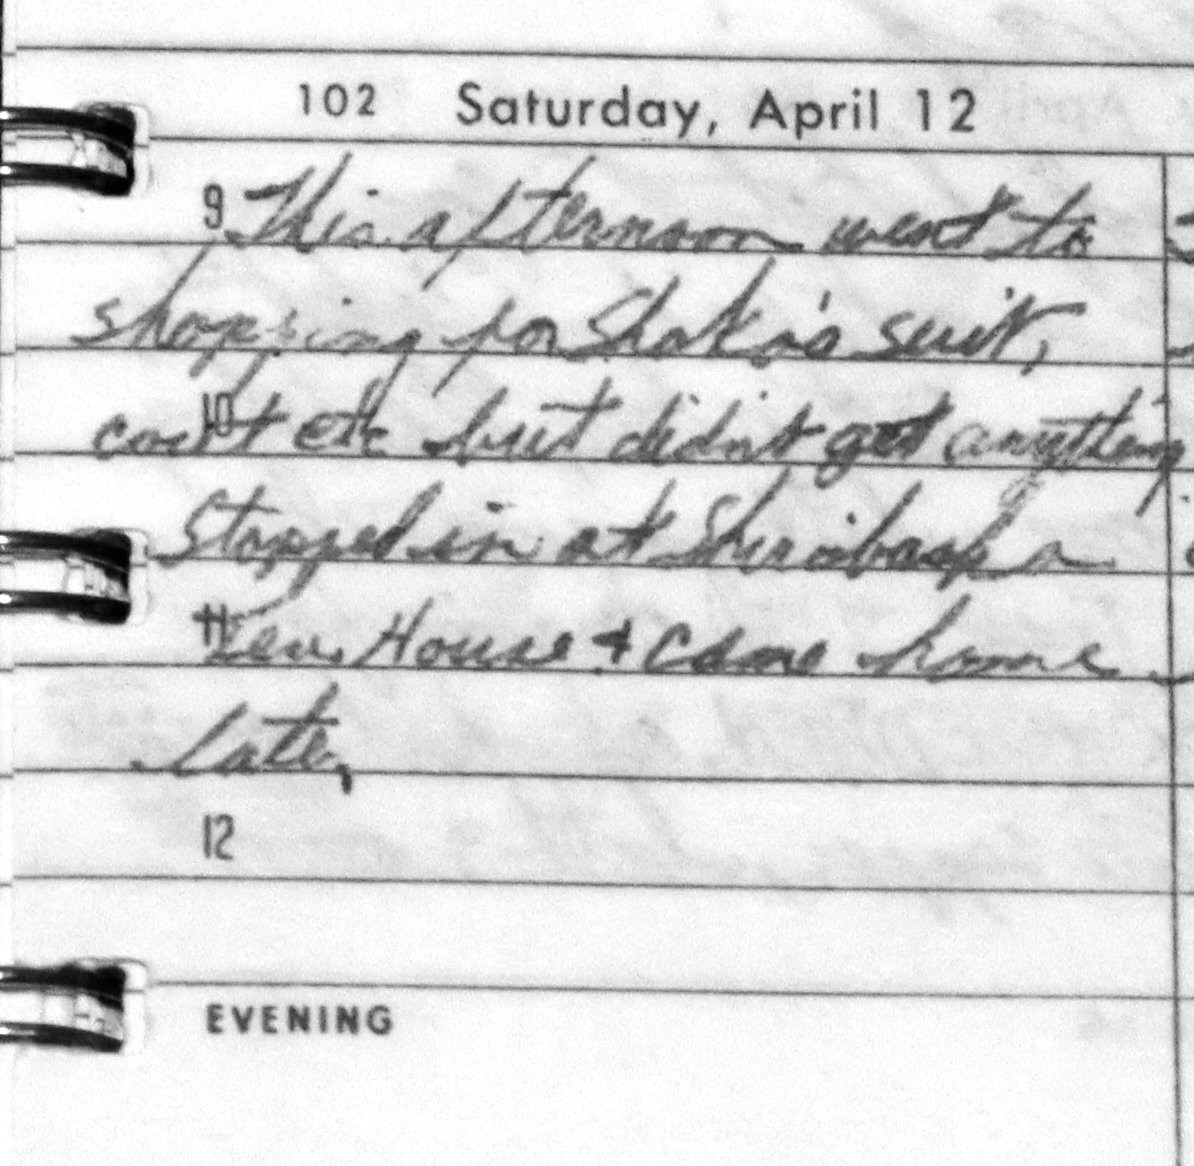 102 Saturday, April 12
9 This afternoon went to
shopping for Shoko's suit,
10 coat etc but didn't get anything
Stopped in at
11 Tea House & came home
late,
12
EVENING